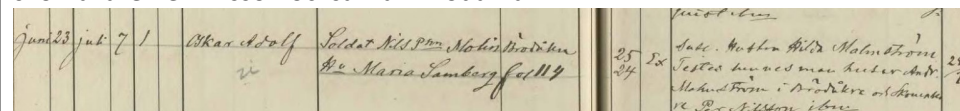 Juni 23 juli 7 1 Oskar Adolf Soldat Nils Pson Molin Brodåkra
Hu Maria Lamberg fol 114
25 Ex Susc. Hustru Hilda Malmström
24 Testes hennes man husar Andr.
Malmström i Brodåkra och Skomaka
re Per Nilsson ibm